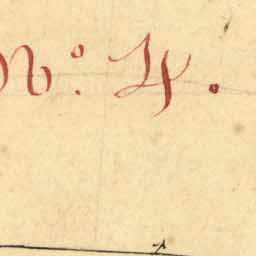 No. 4.